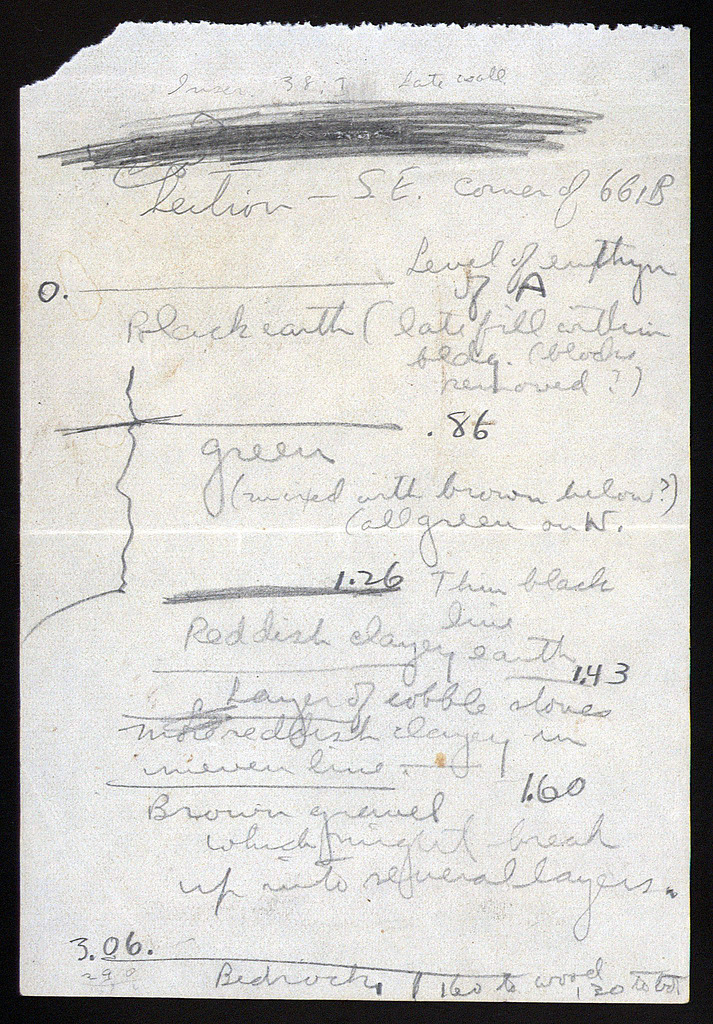 Inscr. 38:7 Late wall
Section – S E. corner of 661B
0. Level of euthyn
of A
Black earth ( late fill within
bldg. (blocks
removed ?)
.86
green
(mixed with brown below?)
(all green on N.
1.26 Thin black
line
Reddish clayey earth
1.43
Layer of cobble stones
more reddish clayey in
uneven line.
1.60
Brown gravel
which might break
up into several layers.
3.06.
Bedrock 160 to wood, 130 to bot